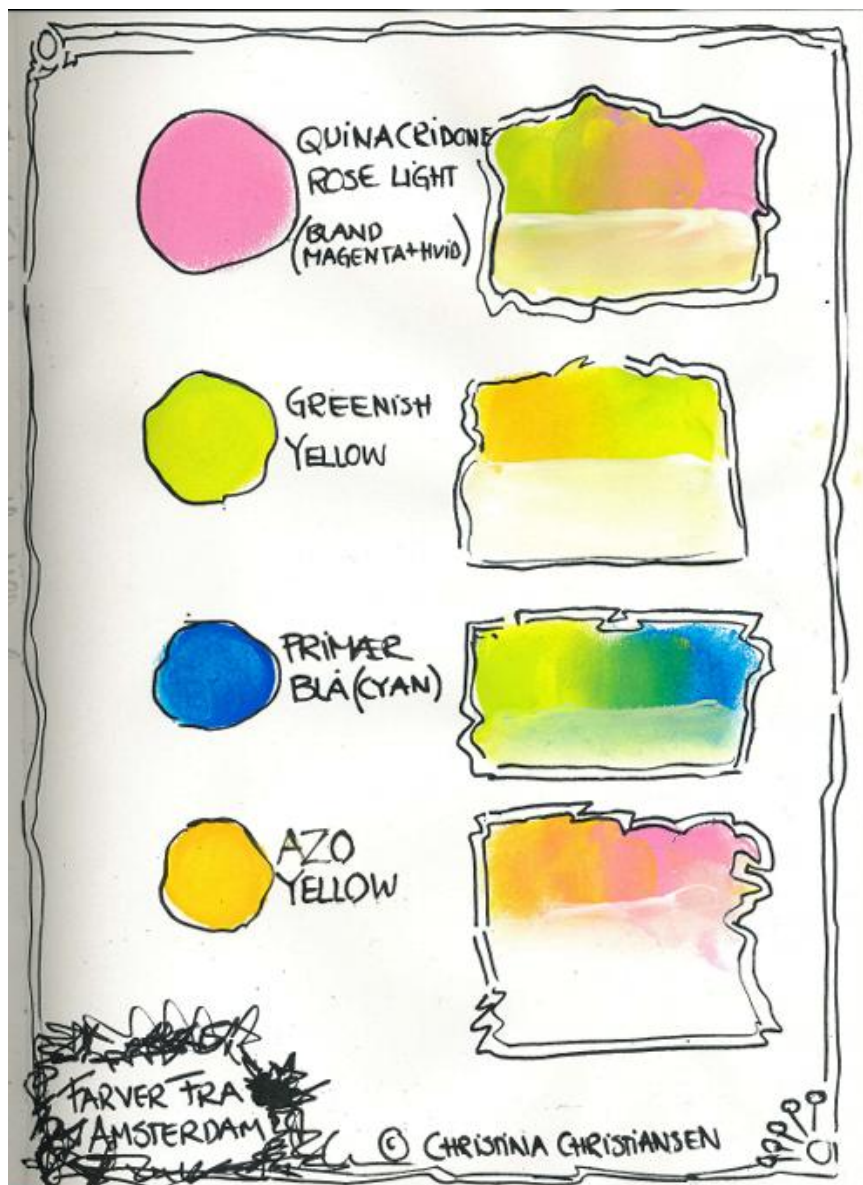 QUINACRIDONE
ROSE LIGHT
(BLAND
MAGENTA+HVID)
GREENISH
YELLOW
PRIMÆR
BLÅ (CYAN)
AZO
YELLOW
FARVER FRA
AMSTERDAM
© CHRISTINA CHRISTIANSEN